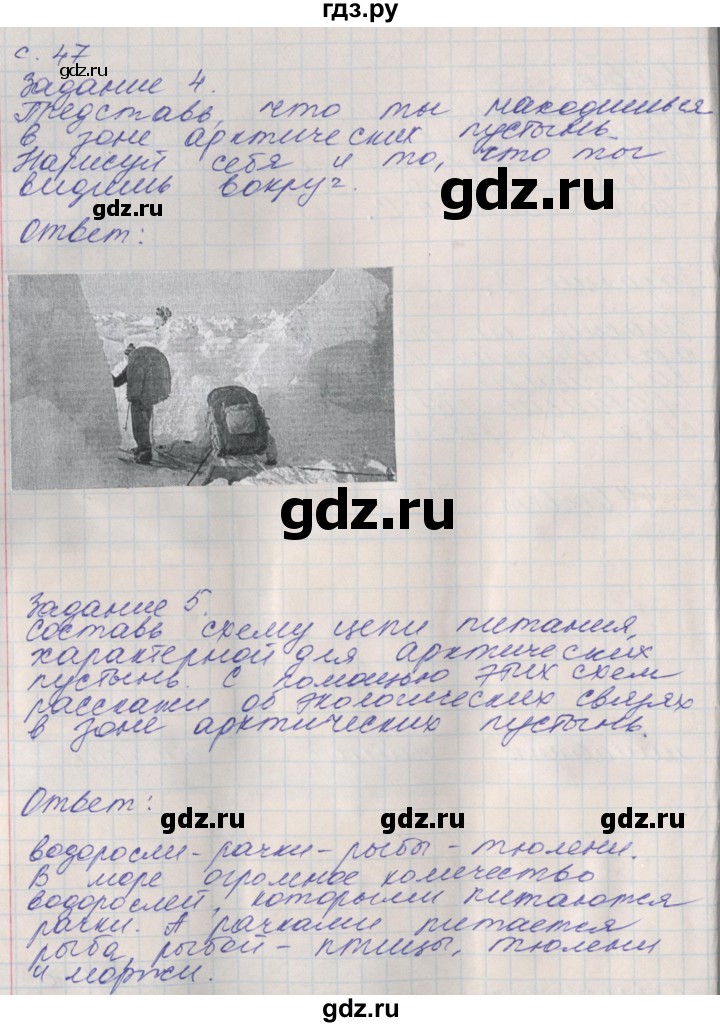 гдз.ру
с. 47
gdz.ru
Задание 4.
Представь, что ты находишься
в зоне арктических пустынь.
Нарисуй себя и то, что ты
видишь вокруг.
gdz.ru
gdz.ru
Ответ:
gdz.ru
Задание 5.
Составь схему цепи питания,
характерной для арктических
пустынь. С помощью этих схем
расскажи об экологических связях
в зоне арктических пустынь.
Ответ:
gdz.ru
gdz.ru
gdz.ru
водоросли - рачки - рыбы - тюлени.
В море огромное количество
водорослей, которыми питаются
рачки. А рачками питается
рыба, рыбой - птицы, тюлени
и моржи.
gdz.ru